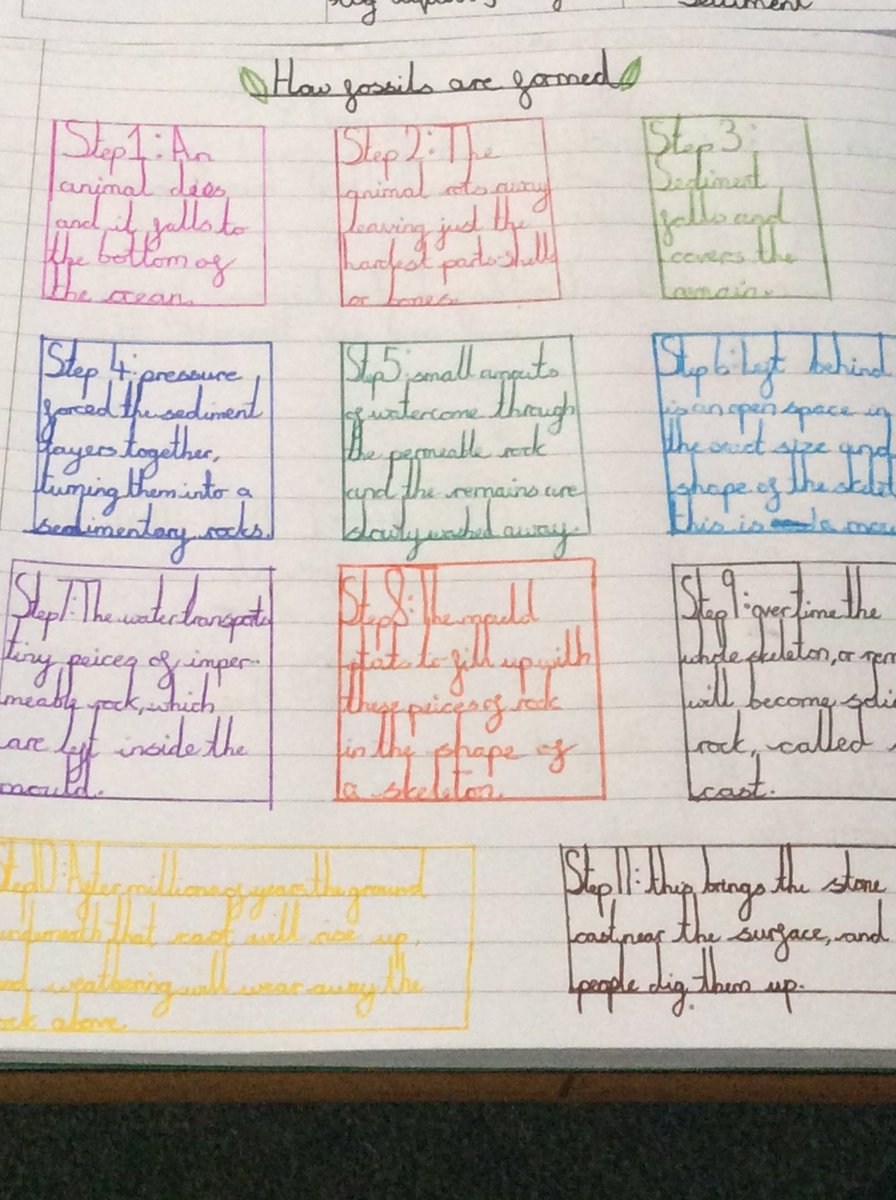 sediment
How fossils are formed
Step 1: An
animal dies
and it falls to
the bottom of
the ocean.
Step 2: The
animal rots away
leaving just the
hardest parts-shells
or bones.
Step 3:
Sediment
falls and
covers the
remain.
Step 4: pressure
forced the sediment
layers together,
turning them into a
sedimentary rocks.
Step 5: small amouts
of water come through
the permeable rock
and the remains are
slowly washed away.
Step 6: Left behind
is an open space in
the exact size and
shape of the
this is a
Step 7: The water transports
tiny peices of imper-
meable rock, which
are left inside the
mould.
Step 8: The mould
stats to fill up with
these peices of rock
in the shape of
a skeleton.
Step 9: over time the
whole skeleton, or
will become
rock, called
cast.
Step 10: After millions of years the ground
underneath that cast will rise up,
and weathering will wear away the
rock above.
Step 11: this brings the stone
cast near the surface, and
people dig them up.